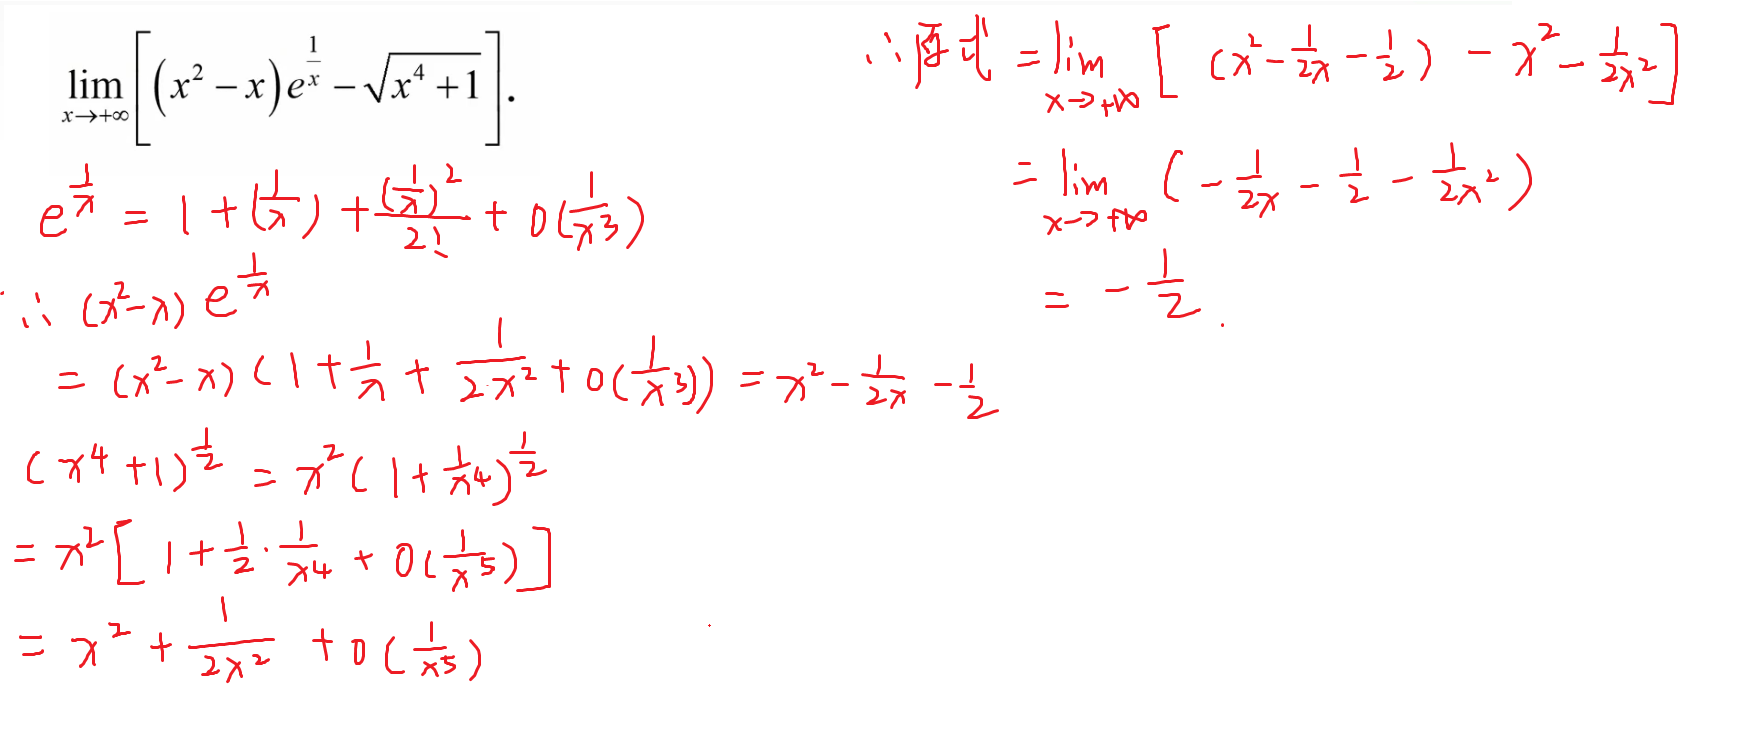 lim_{x→+∞} [(x² − x)e^{1/x} − √(x⁴ + 1)].
e^{1/x} = 1 + (1/x) + (1/x)²/2! + o(1/x³)
∴ (x²−x) e^{1/x}
= (x²−x)(1 + 1/x + 1/(2·x²) + o(1/x³)) = x² − 1/(2x) − 1/2
(x⁴+1)^{1/2} = x²(1 + 1/x⁴)^{1/2}
= x²[1 + 1/2 · 1/x⁴ + o(1/x⁵)]
= x² + 1/(2x²) + o(1/x⁵)
∴原式 = lim_{x→+∞} [(x² − 1/(2x) − 1/2) − x² − 1/(2x²)]
= lim_{x→+∞} (−1/(2x) − 1/2 − 1/(2x²))
= −1/2.